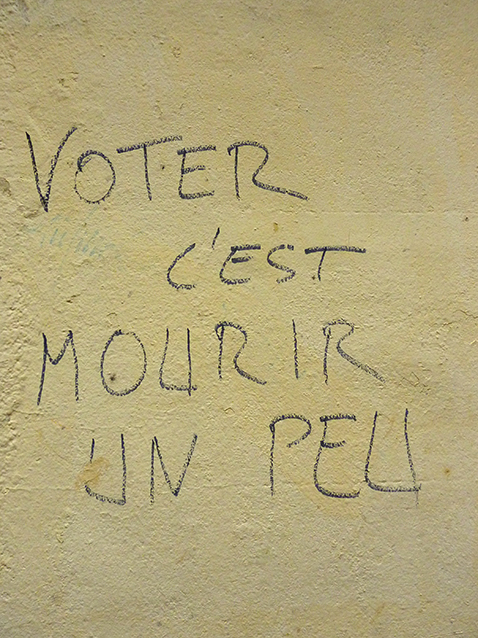 VOTER
C'EST
MOURIR
UN PEU